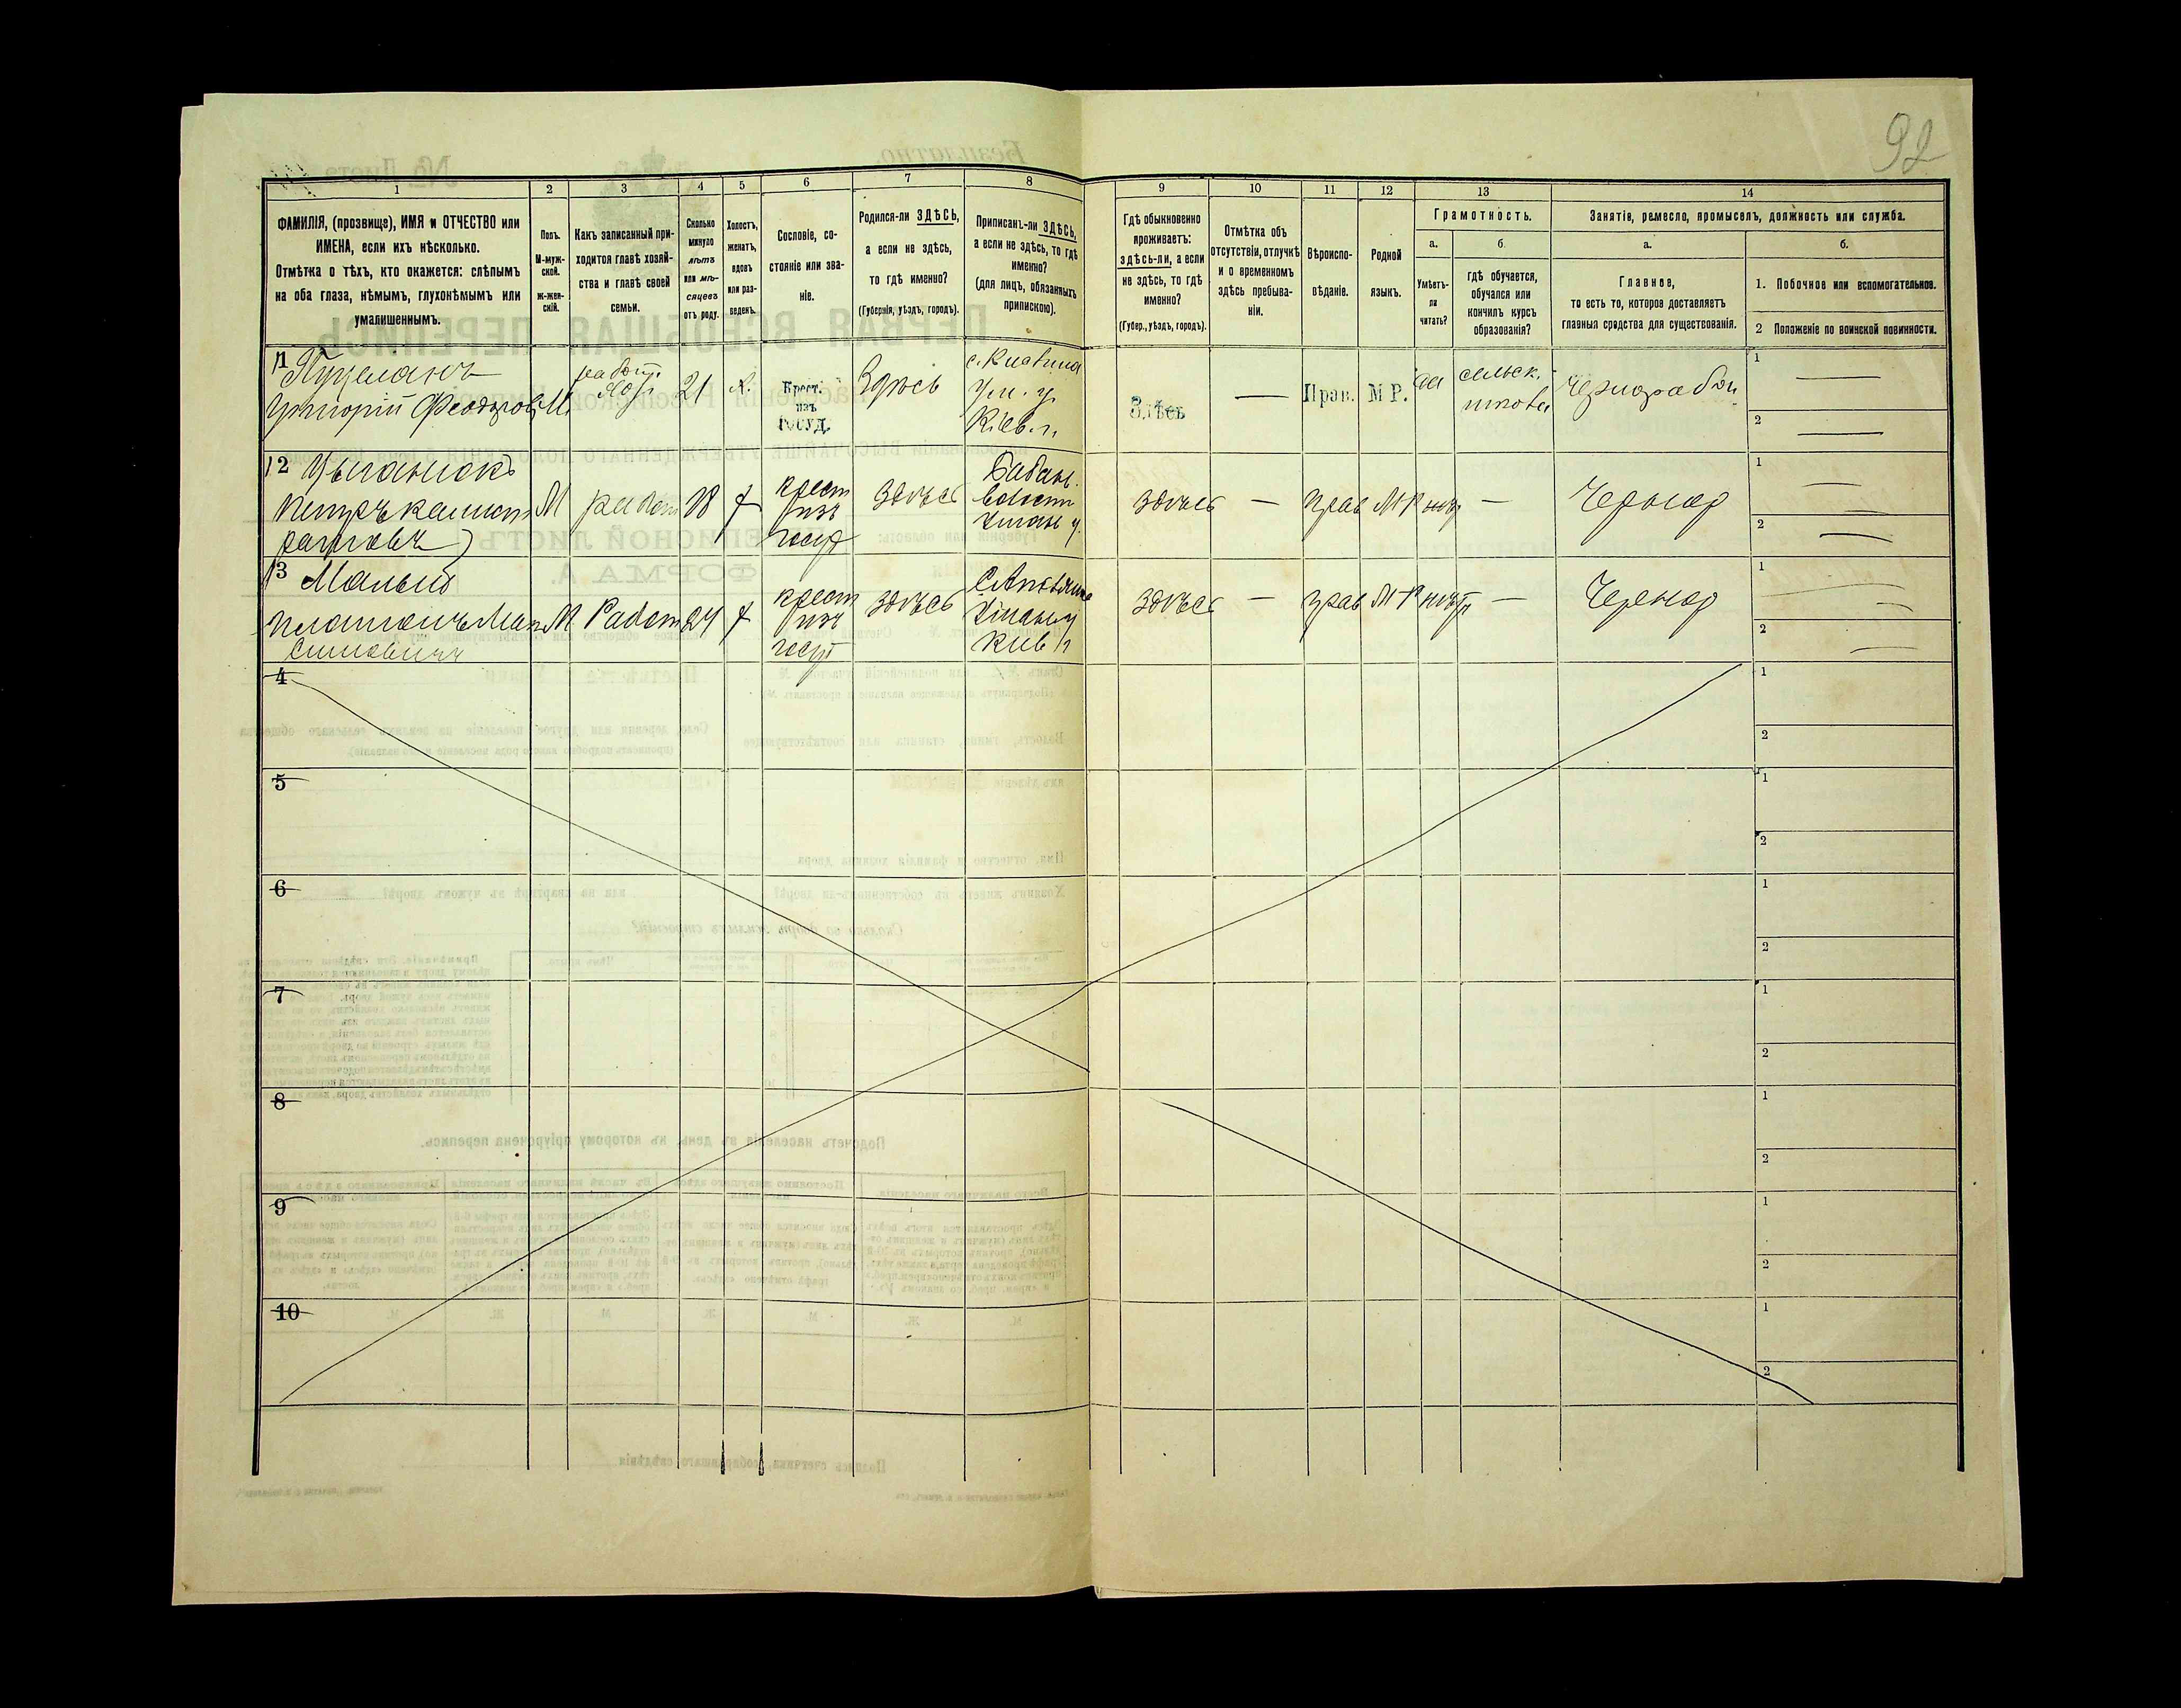 92
1 2 3 4 5 6 7 8 9 10 11 12 13 14
ФАМИЛІЯ, (прозвище), ИМЯ и ОТЧЕСТВО или
ИМЕНА, если ихъ нѣсколько.
Отмѣтка о тѣхъ, кто окажется: слѣпымъ
на оба глаза, нѣмымъ, глухонѣмымъ или
умалишеннымъ.
Полъ.
М-муж-
ской.
ж-жен-
скій.
Какъ записанный при-
ходится главѣ хозяй-
ства и главѣ своей
семьи.
Сколько
минуло
лѣтъ
или мѣ-
сяцевъ
отъ роду.
Холостъ,
женатъ,
вдовъ
или раз-
веденъ.
Сословіе, со-
стояніе или зва-
ніе.
Родился-ли ЗДѢСЬ,
а если не здѣсь,
то гдѣ именно?
(Губернія, уѣздъ, городъ).
Приписанъ-ли ЗДѢСЬ,
а если не здѣсь, то гдѣ
именно?
(для лицъ, обязанныхъ
припискою).
Гдѣ обыкновенно
проживаетъ:
здѣсь-ли, а если
не здѣсь, то гдѣ
именно?
(Губер., уѣздъ, городъ).
Отмѣтка объ
отсутствіи, отлучкѣ
и о временномъ
здѣсь пребыва-
ніи.
Вѣроиспо-
вѣданіе.
Родной
языкъ.
Грамотность.
а.
Умѣетъ-
ли
читать?
б.
гдѣ обучается,
обучался или
кончилъ курсъ
образованія?
Занятія, ремесло, промыселъ, должность или служба.
а.
Главное,
то есть то, которое доставляетъ
главныя средства для существованія.
б.
1. Побочное или вспомогательное.
2 Положеніе по воинской повинности.
11
Григорій Феодоров
М.
работ.
21
Х.
Крест.
изъ
Госуд.
Здѣсь
Ум. у.
Кіев. г.
Здѣсь
—
Прав.
М Р.
да
сельск.
школа
Чернорабоч.
1 —
2 —
12 Цыганюкъ
Петръ
М
работ
18
х
крест
изъ
госуд
здѣсь
Бабан.
волости
Уман у.
здѣсь
—
прав
М Р
нѣт
—
Чернор
1
2 —
13 Малый
Платонъ
М
Работ
24
х
крест
изъ
госуд
здѣсь
Уман у
Кив г
здѣсь
—
прав
М Р
нѣт
—
Чернор
1
2 —
4
1
2
5
1
2
6
1
2
7
1
2
8
1
2
9
1
2
10
1
2